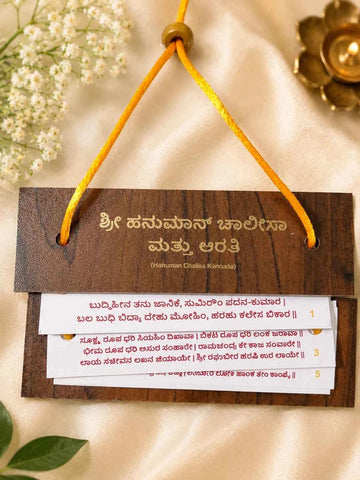 ಶ್ರೀ ಹನುಮಾನ್ ಚಾಲೀಸಾ
ಮತ್ತು ಆರತಿ
(Hanuman Chalisa Kannada)
ಬುದ್ಧಿಹೀನ ತನು ಜಾನಿಕೆ, ಸುಮಿರೌಂ ಪವನ-ಕುಮಾರ |
ಬಲ ಬುಧಿ ಬಿದ್ಯಾ ದೇಹು ಮೋಹಿಂ, ಹರಹು ಕಲೇಸ ಬಿಕಾರ || 1
ಸೂಕ್ಷ್ಮ ರೂಪ ಧರಿ ಸಿಯಹಿಂ ದಿಖಾವಾ | ಬಿಕಟ ರೂಪ ಧರಿ ಲಂಕ ಜರಾವಾ ||
ಭೀಮ ರೂಪ ಧರಿ ಅಸುರ ಸಂಹಾರೇ | ರಾಮಚಂದ್ರ ಕೇ ಕಾಜ ಸಂವಾರೇ || 3
ಲಾಯ ಸಜೀವನ ಲಖನ ಜಿಯಾಯೇ | ಶ್ರೀ ರಘುಬೀರ ಹರಷಿ ಉರ ಲಾಯೇ ||
ಹಾಂಕ ತೇಂ ಕಾಂಪೈ || 5